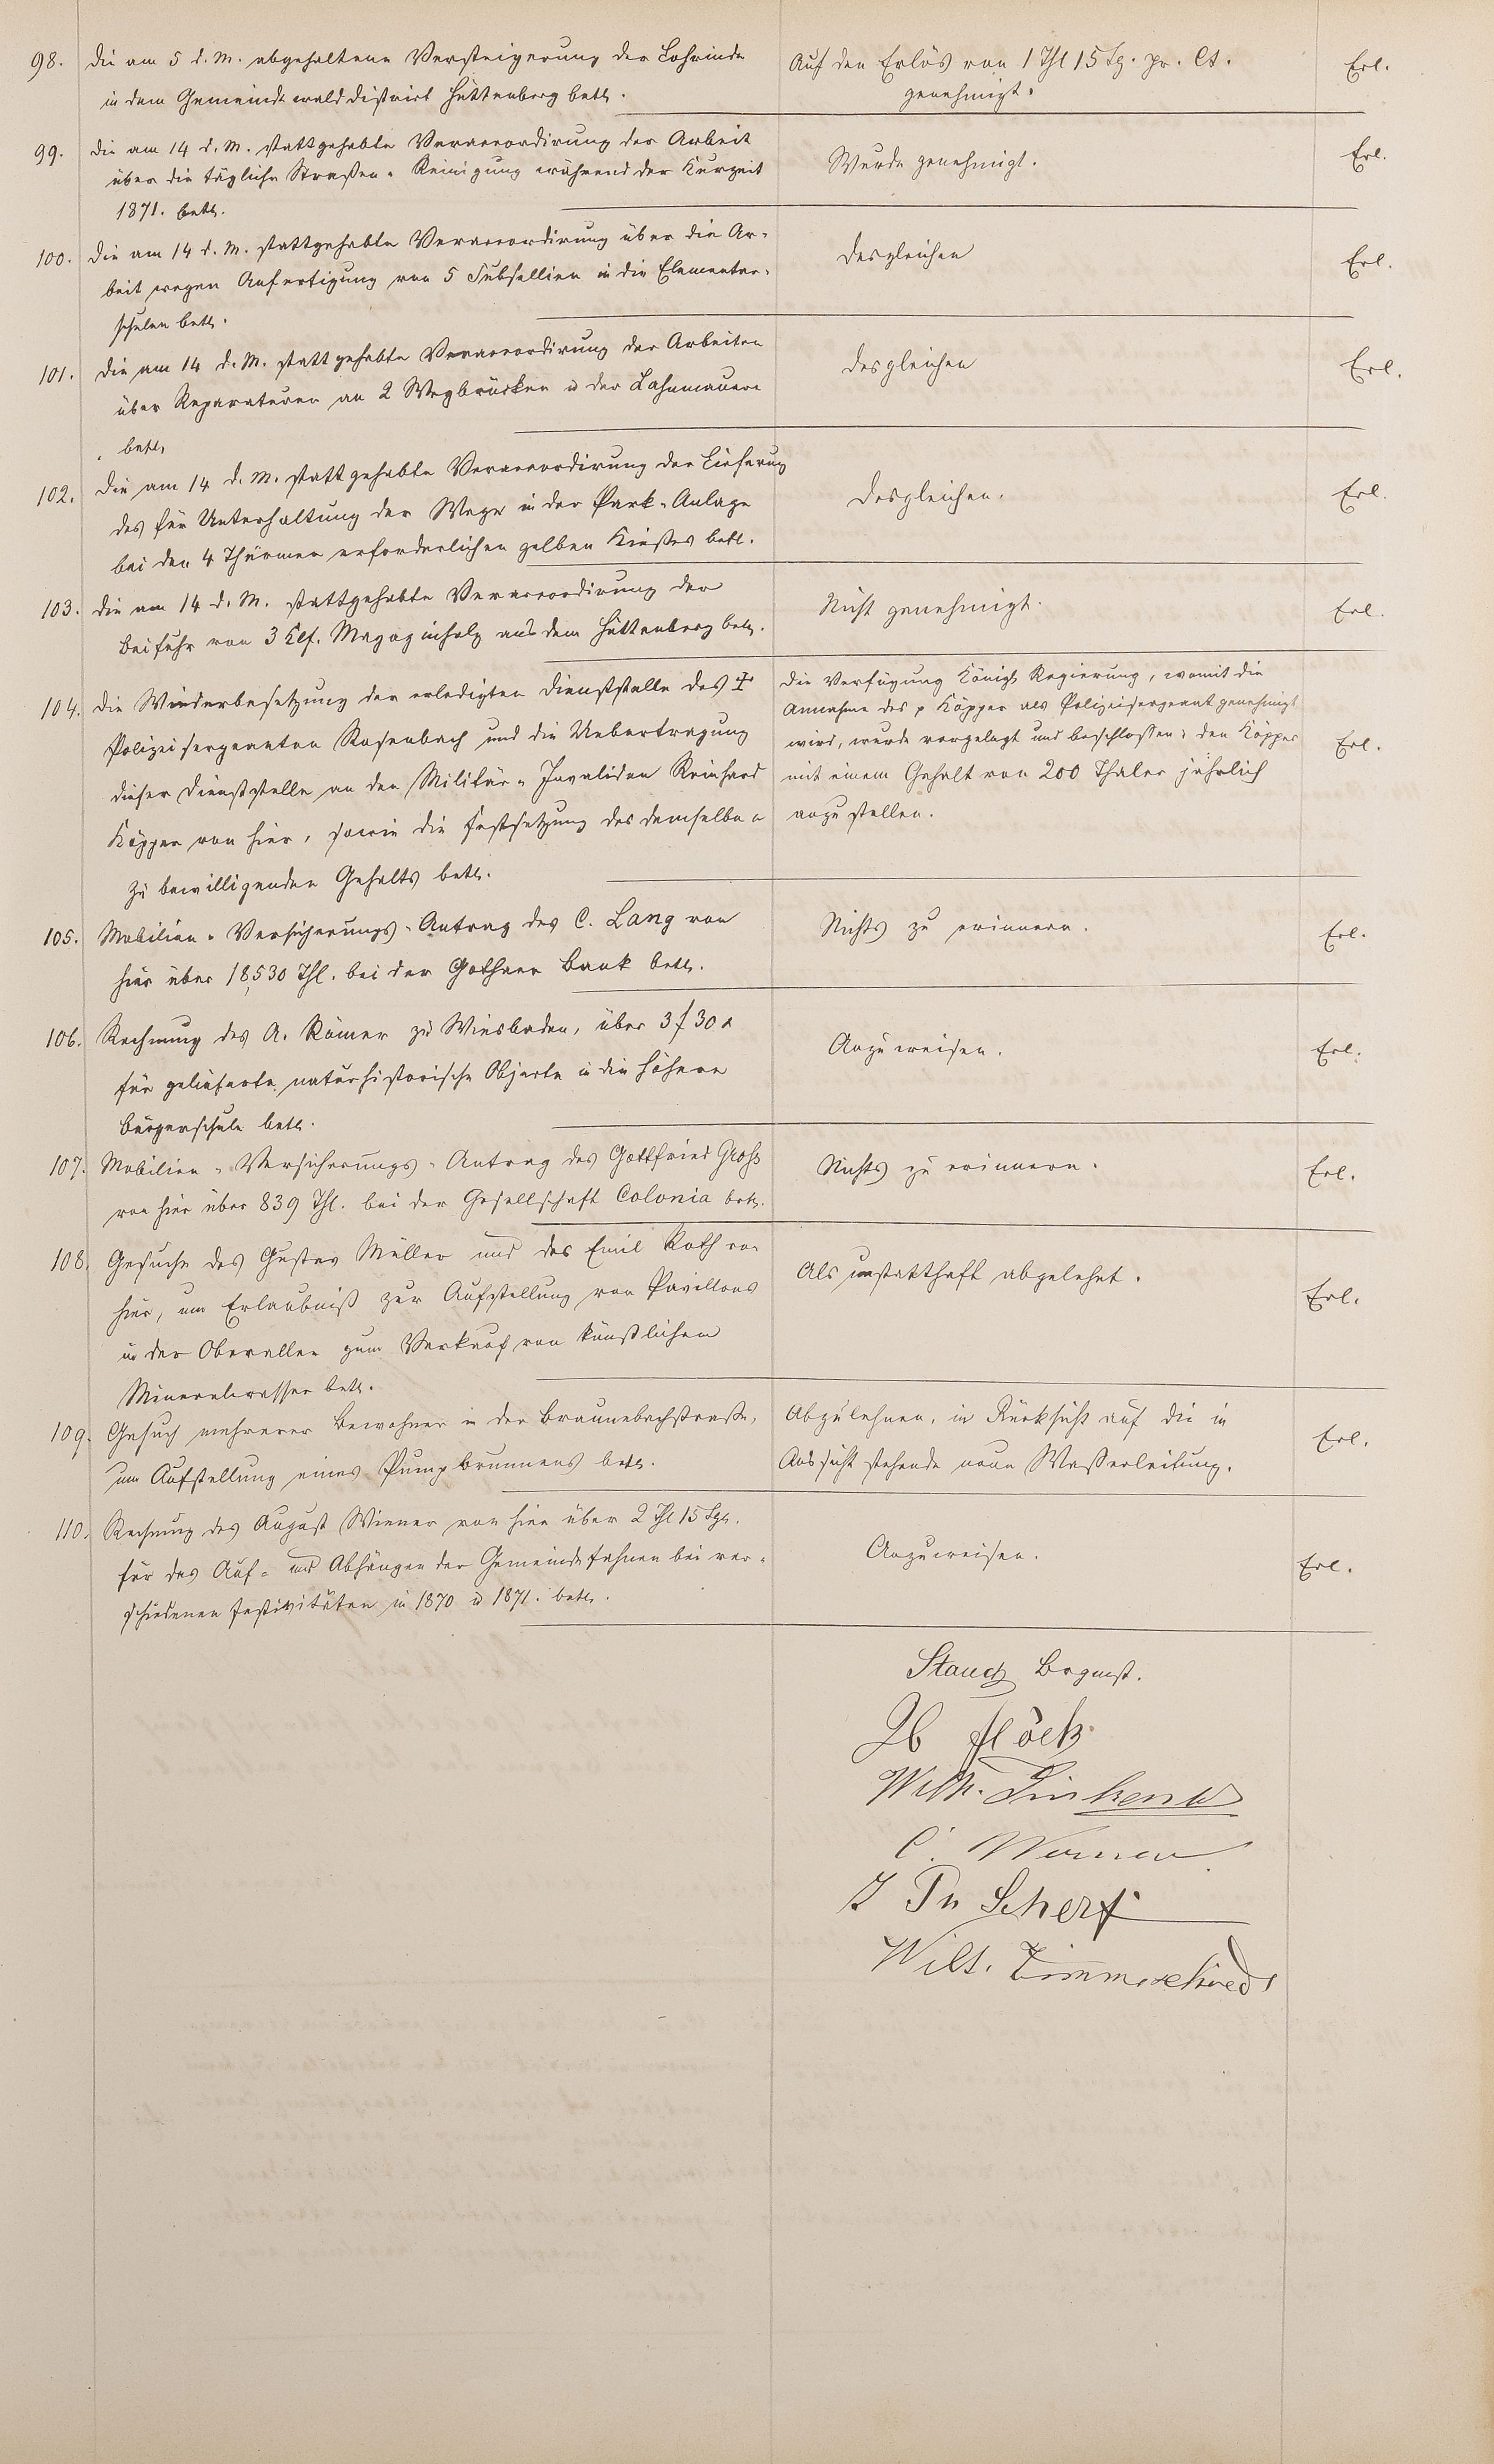 98. Die am 5 d. M. abgehaltene Versteigerung der Lohrinde
in dem Gemeindewalddistrict Hüttenberg betr.
Auf den Erlös von 1 Thl 15 Sg. pr. Ct.
genehmigt.
Erl.
99. Die am 14 d. M. stattgehabte Veraccordirung der Arbeit
über die tägliche Straßen-Reinigung während der Kurzeit
1871. betr.
Wurde genehmigt.
Erl.
100. Die am 14 d. M. stattgehabte Veraccordirung über die Ar-
beit wegen Anfertigung von 5 Subsellien in die Elementar-
schulen betr.
desgleichen
Erl.
101. Die am 14 d. M. stattgehabte Veraccordirung der Arbeiten
über Reparaturen an 2 Wegbrücken u der Lahnmauern
betr.
desgleichen
Erl.
102. Die am 14 d. M. stattgehabte Veraccordirung der Lieferung
des für Unterhaltung der Wege in der Park-Anlage
bei den 4 Thürmen erforderlichen gelben Kießes betr.
desgleichen.
Erl.
103. Die am 14 d. M. stattgehabte Veraccordirung der
Beifuhr von 3 Klf. Magazinholz aus dem Hüttenberg betr.
Nicht genehmigt.
Erl.
104. Die Wiederbesetzung der erledigten Dienststelle des †
Polizeisergeanten Rosenbach und die Uebertragung
dieser Dienststelle an den Militär-Invaliden Reinhard
Köpper von hier, sowie die Festsetzung des demselben
zu bewilligenden Gehalts betr.
Die Verfügung Königl Regierung, womit die
Annahme des p Köpper als Polizeisergeant genehmigt
wird, wurde vorgelegt und beschlossen: den Köpper
mit einem Gehalt von 200 Thaler jährlich
anzustellen.
Erl.
105. Mobilien-Versicherungs-Antrag des C. Lang von
hier über 18,530 Thl. bei der Gothaer Bank betr.
Nichts zu erinnern.
Erl.
106. Rechnung des A. Römer zu Wiesbaden, über 3 f 30 x
für gelieferte naturhistorische Objecte in die höhere
Bürgerschule betr.
Anzuweisen.
Erl.
107. Mobilien-Versicherungs-Antrag des Gottfried Groß
von hier über 839 Thl. bei der Gesellschaft Colonia betr.
Nichts zu erinnern.
Erl.
108. Gesuche des Gustav Müller und des Emil Roth von
hier, um Erlaubniß zur Aufstellung von Pavillons
in der Oberallee zum Verkauf von künstlichem
Mineralwasser betr.
Als unstatthaft abgelehnt.
Erl.
109. Gesuch mehrerer Bewohner in der Braunebachstraße,
um Aufstellung eines Pumpbrunnens betr.
Abzulehnen, in Rücksicht auf die in
Aussicht stehende neue Wasserleitung.
Erl.
110. Rechnung des August Wiener von hier über 2 Thl 15 Sgr.
für das Auf- und Abhängen der Gemeindefahnen bei ver-
schiedenen Festivitäten in 1870 u 1871. betr.
Anzuweisen.
Erl.
Bgmst.
Flöck
Wilh. Linkenbach
C. Werner
Scherf
Wilh. Zimmerschied